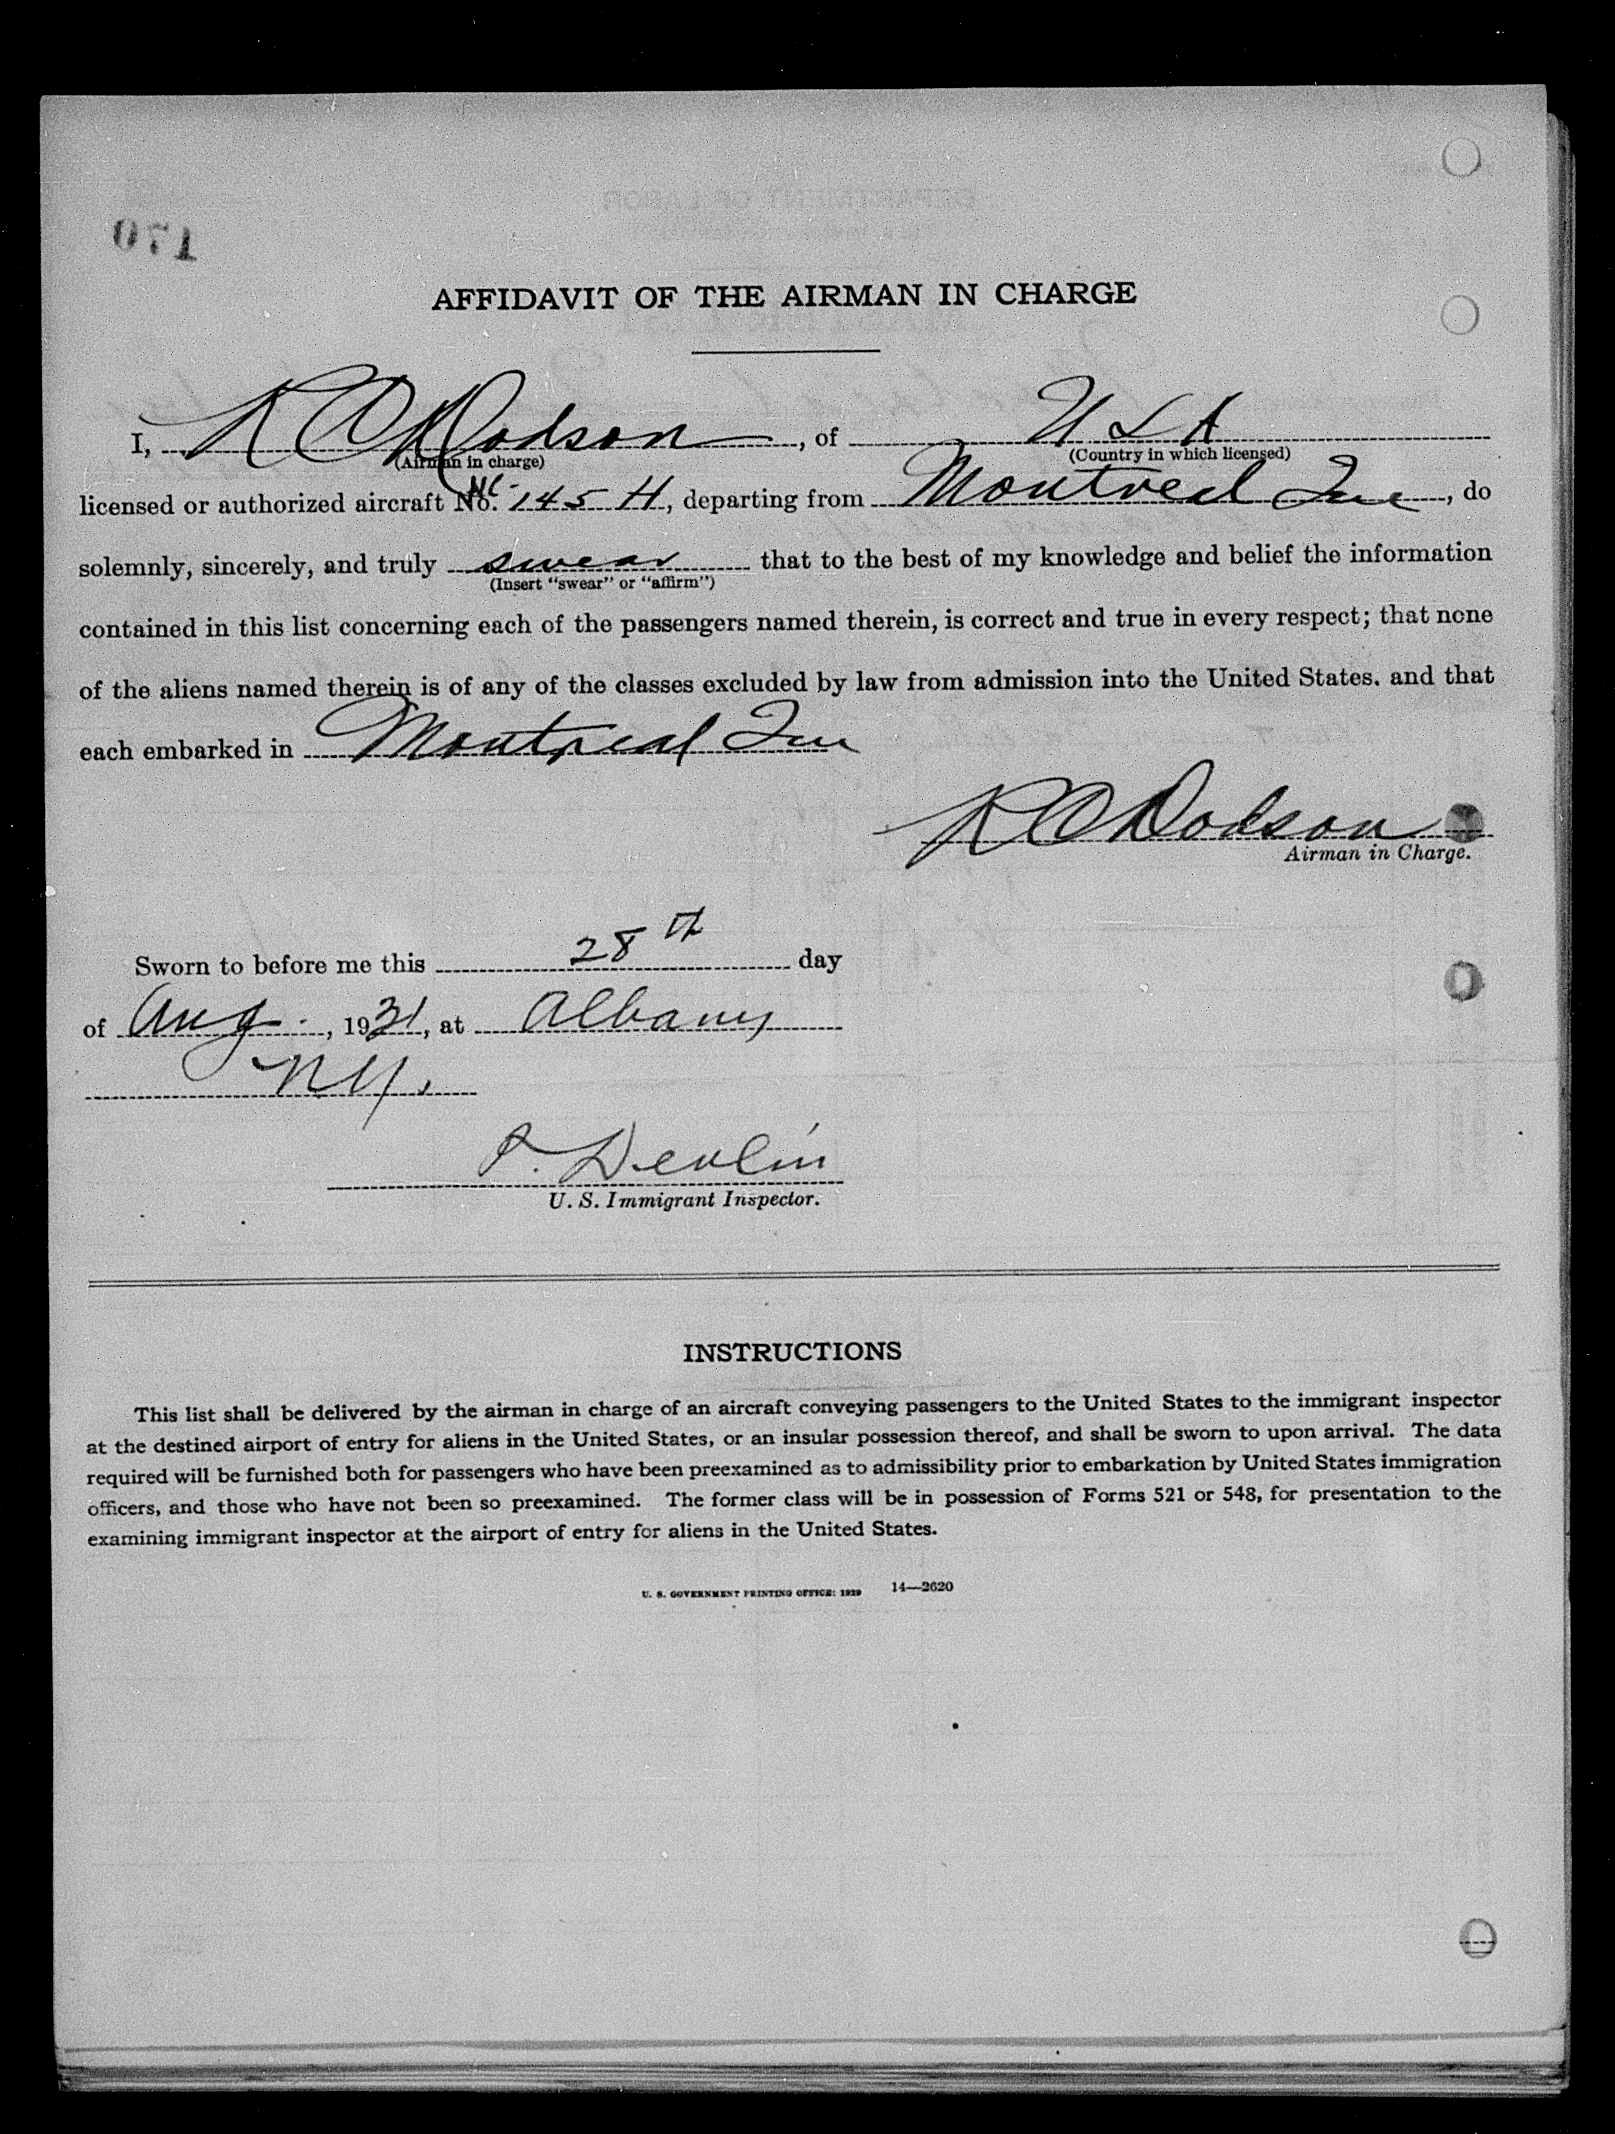 170
AFFIDAVIT OF THE AIRMAN IN CHARGE
I, R O Dodson, of USA
(Airman in charge) (Country in which licensed)
licensed or authorized aircraft No. NC-145 H, departing from Montreal Que, do
solemnly, sincerely, and truly swear that to the best of my knowledge and belief the information
(Insert "swear" or "affirm")
contained in this list concerning each of the passengers named therein, is correct and true in every respect; that none
of the aliens named therein is of any of the classes excluded by law from admission into the United States. and that
each embarked in Montreal Que
R O Dodson
Airman in Charge.
Sworn to before me this 28th day
of Aug., 1931, at Albany
NY.
P. Devlin
U. S. Immigrant Inspector.
INSTRUCTIONS
This list shall be delivered by the airman in charge of an aircraft conveying passengers to the United States to the immigrant inspector
at the destined airport of entry for aliens in the United States, or an insular possession thereof, and shall be sworn to upon arrival. The data
required will be furnished both for passengers who have been preexamined as to admissibility prior to embarkation by United States immigration
officers, and those who have not been so preexamined. The former class will be in possession of Forms 521 or 548, for presentation to the
examining immigrant inspector at the airport of entry for aliens in the United States.
U. S. GOVERNMENT PRINTING OFFICE: 1929 14—2620